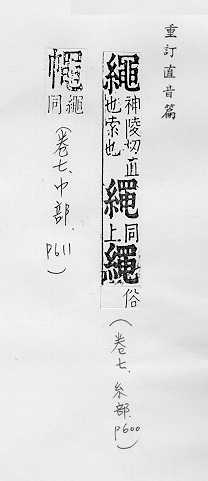 重訂直音篇
繩神陵切直也索也繩同上繩俗
(卷七、糸部. p600)
㡆同繩
(卷七、巾部. p611)